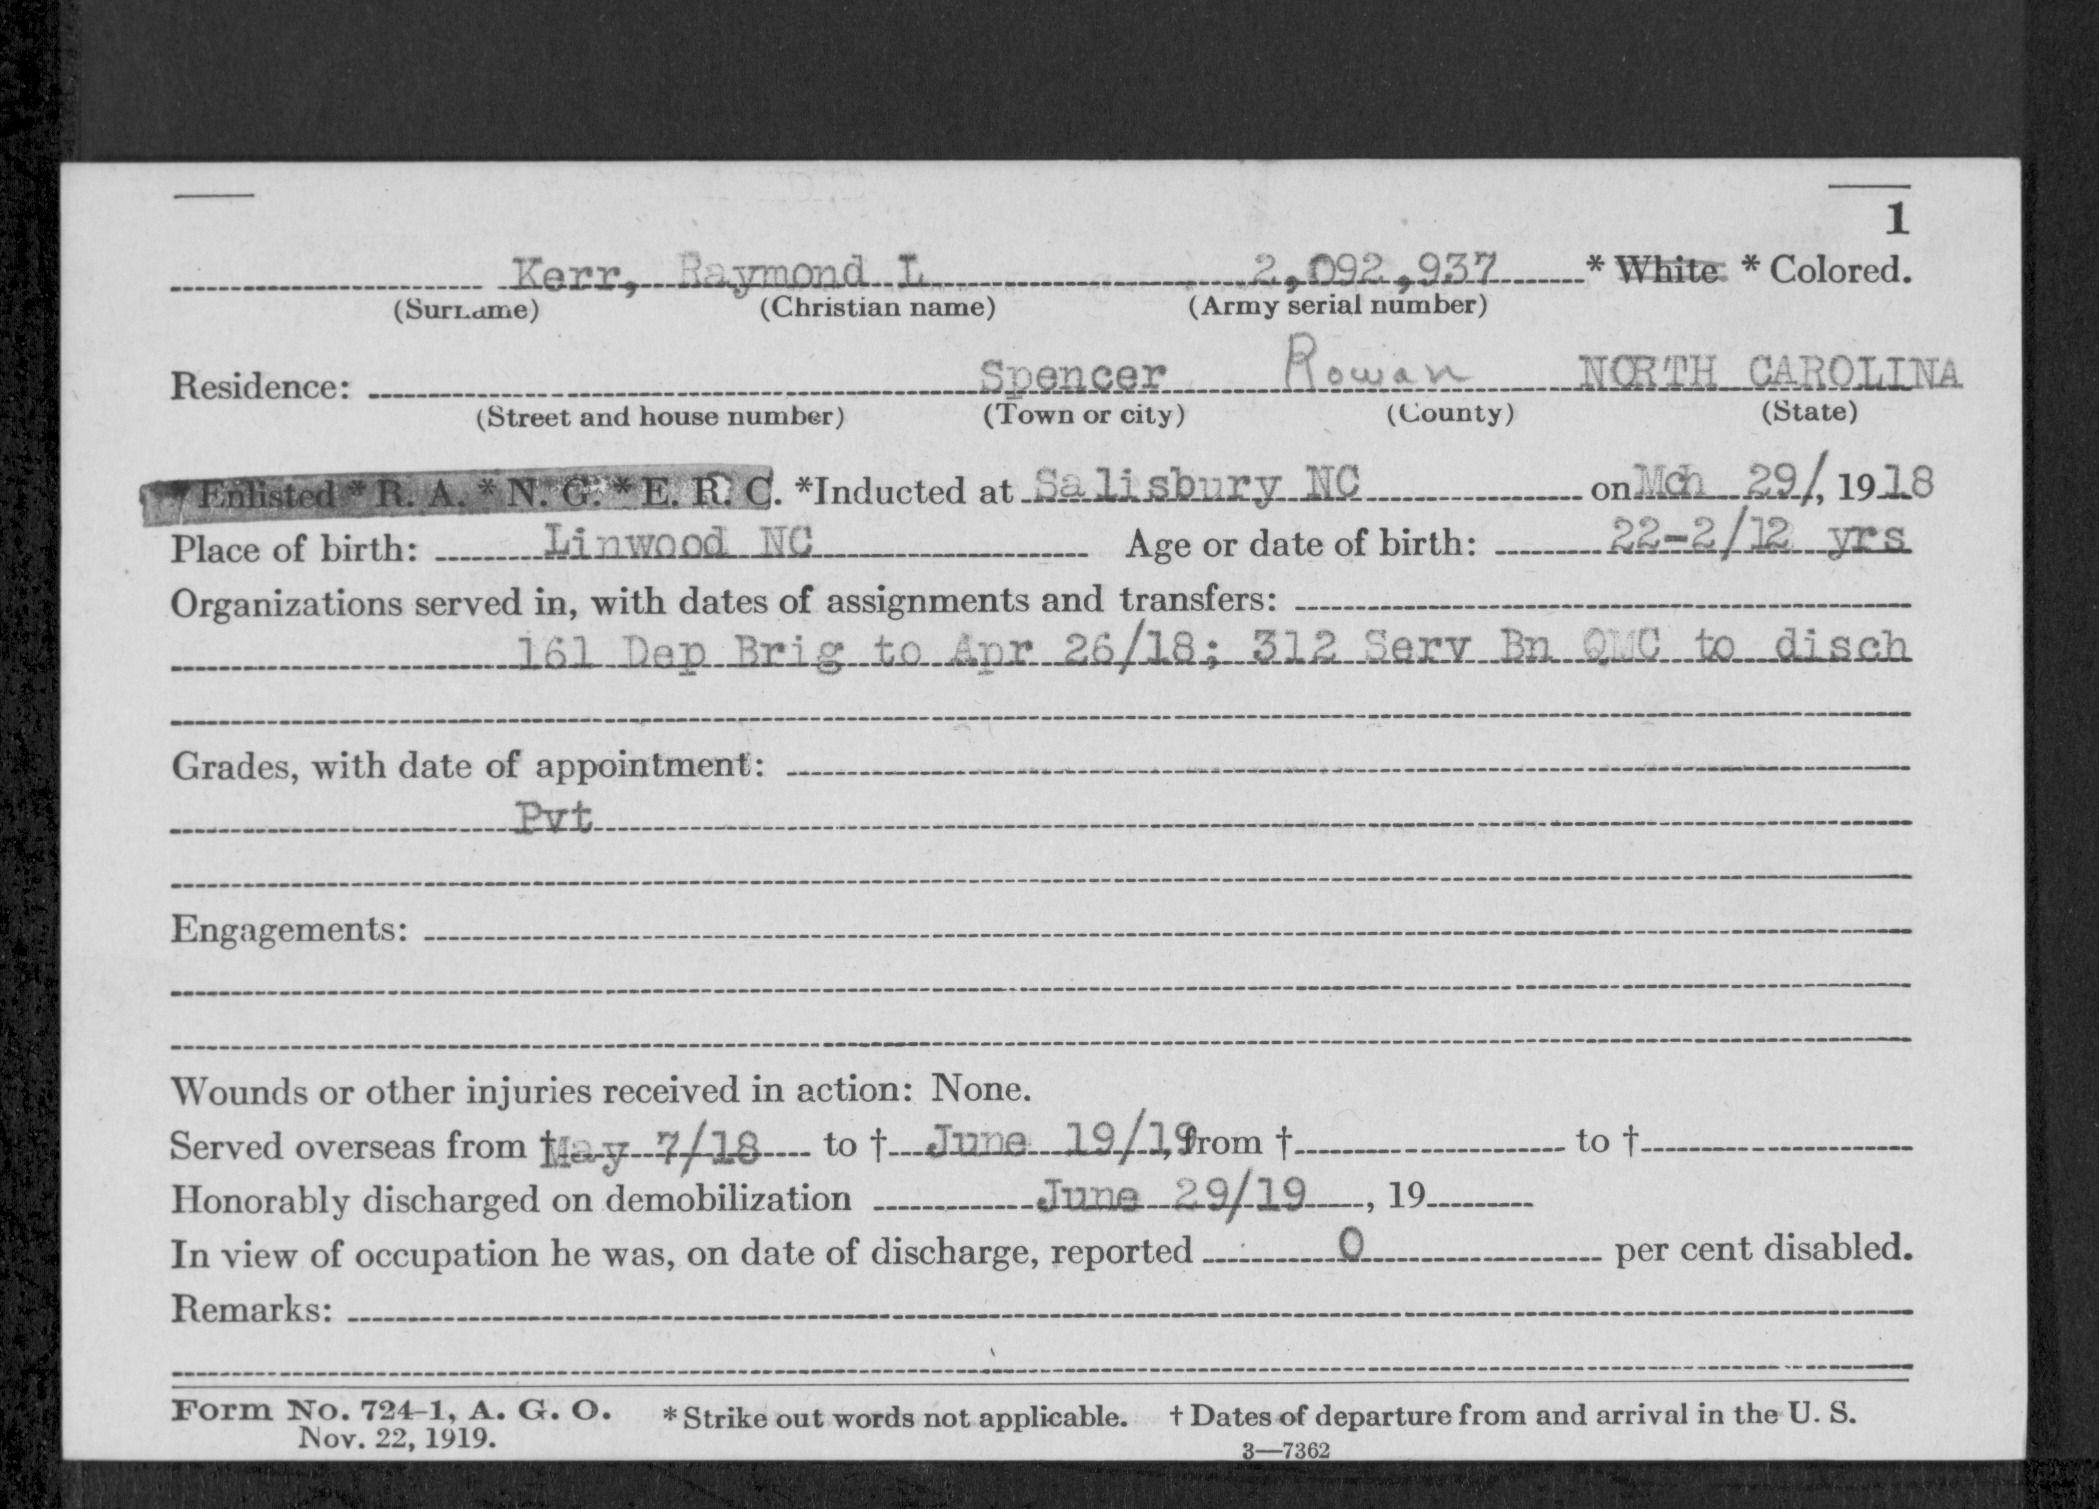 1
Kerr, Raymond L 2,092,937 * White * Colored.
(Surname) (Christian name) (Army serial number)
Residence: Spencer Rowan NORTH CAROLINA
(Street and house number) (Town or city) (County) (State)
Enlisted * R. A. * N. G. * E. R. C. *Inducted at Salisbury NC on Mch 29/, 1918
Place of birth: Linwood NC Age or date of birth: 22-2/12 yrs
Organizations served in, with dates of assignments and transfers:
161 Dep Brig to Apr 26/18; 312 Serv Bn QMC to disch
Grades, with date of appointment:
Pvt
Engagements:
Wounds or other injuries received in action: None.
Served overseas from † May 7/18 to † June 19/19, from † to †
Honorably discharged on demobilization June 29/19, 19
In view of occupation he was, on date of discharge, reported 0 per cent disabled.
Remarks:
Form No. 724-1, A. G. O. * Strike out words not applicable. † Dates of departure from and arrival in the U. S.
Nov. 22, 1919.
3—7362